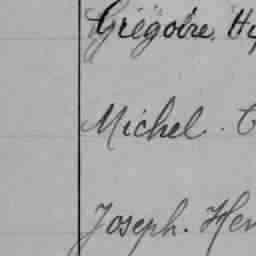 Grégoire. Hy
Michel. C
Joseph. Hen